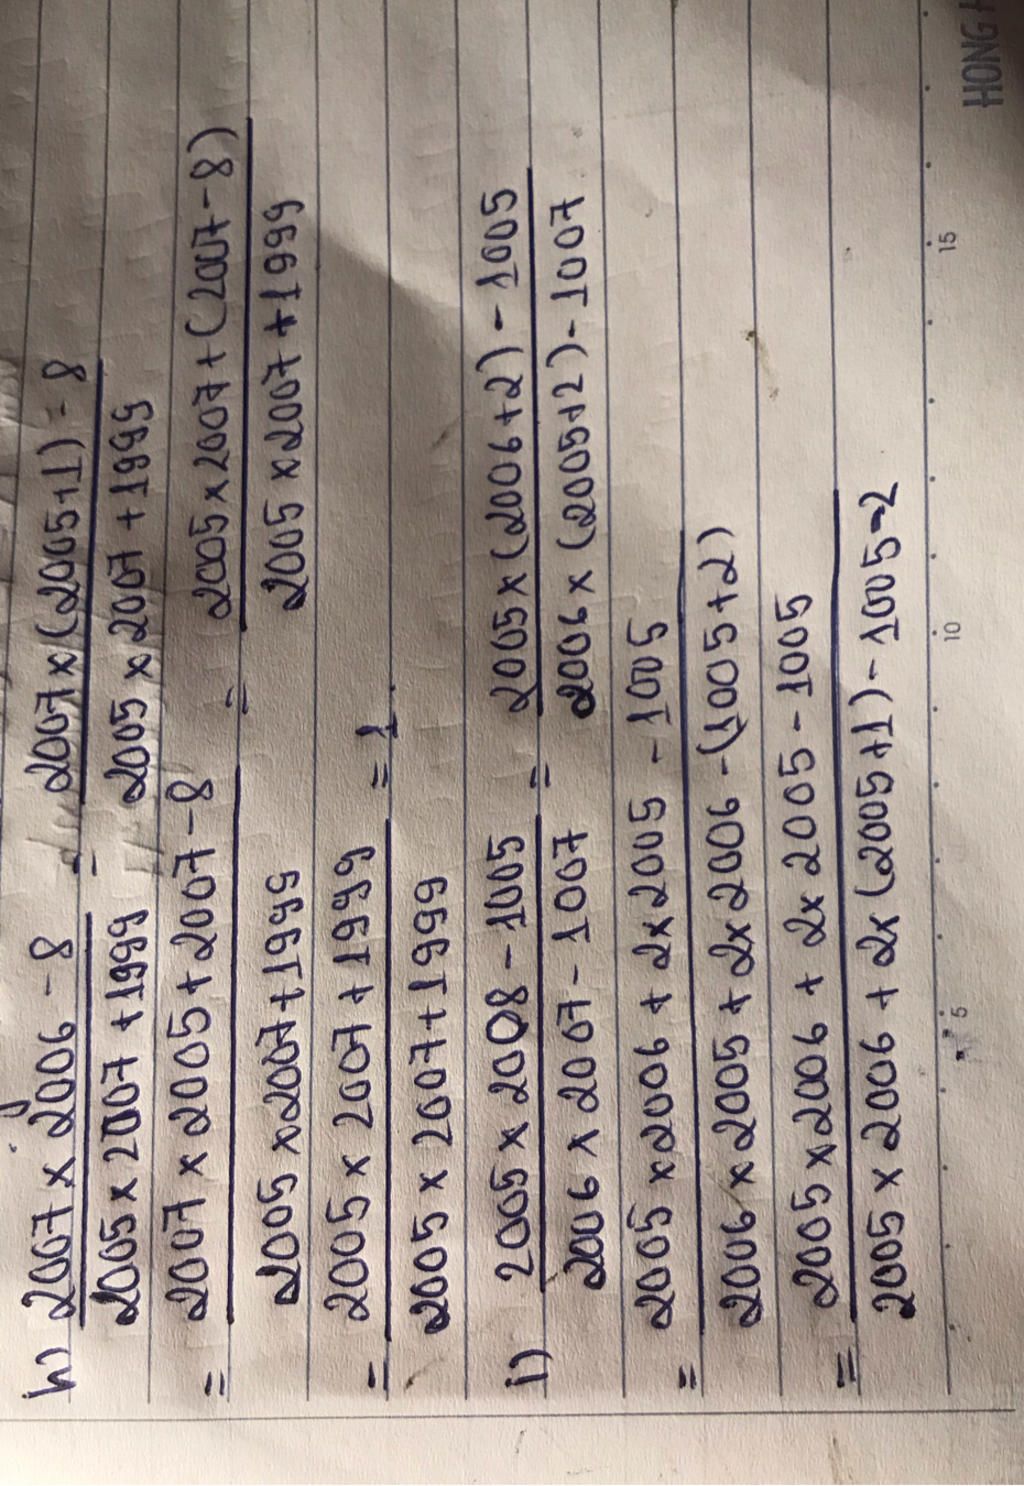 h) 2007 x 2006 - 8 / 2005 x 2007 + 1999 = 2007 x (2005+1) - 8 / 2005 x 2007 + 1999
= 2007 x 2005 + 2007 - 8 / 2005 x 2007 + 1999 = 2005 x 2007 + (2007 - 8) / 2005 x 2007 + 1999
= 2005 x 2007 + 1999 / 2005 x 2007 + 1999 = 1.
i) 2005 x 2008 - 1005 / 2006 x 2007 - 1007 = 2005 x (2006 + 2) - 1005 / 2006 x (2005 + 2) - 1007
= 2005 x 2006 + 2 x 2005 - 1005 / 2006 x 2005 + 2 x 2006 - (1005 + 2)
= 2005 x 2006 + 2 x 2005 - 1005 / 2005 x 2006 + 2 x (2005 + 1) - 1005 - 2
5 10 15
HONG H